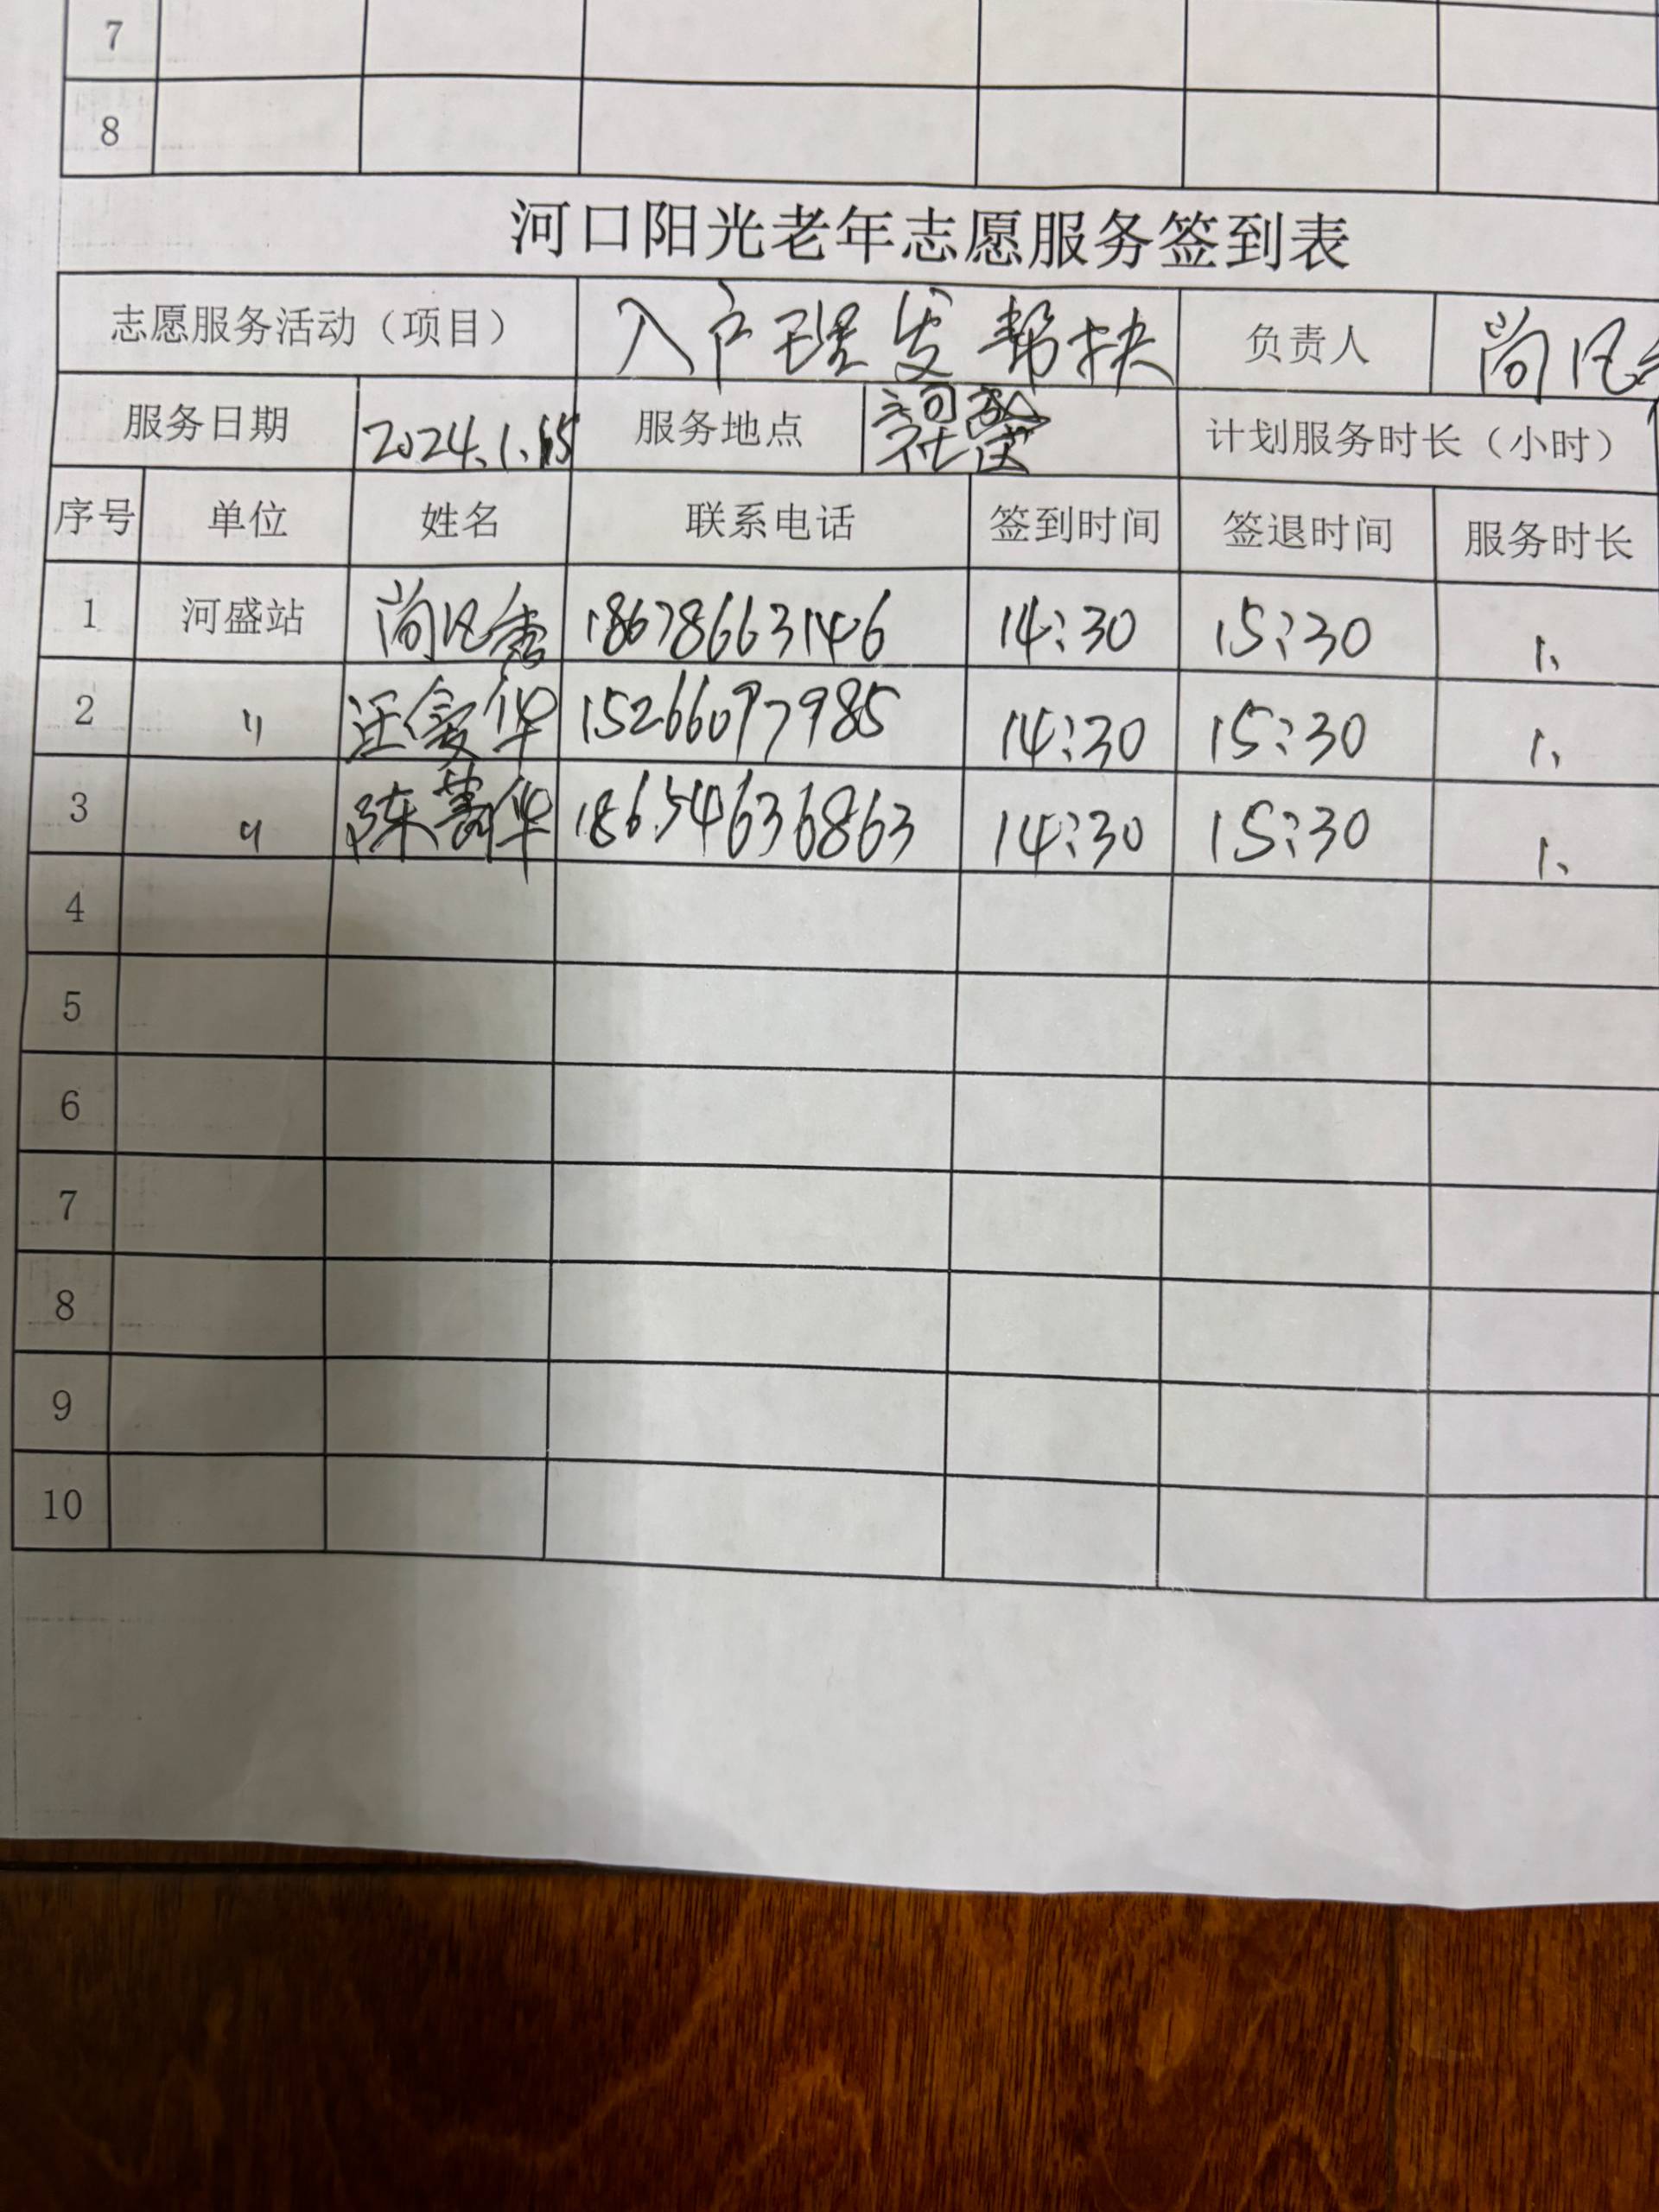 7
8
河口阳光老年志愿服务签到表
志愿服务活动（项目） 入户理发帮扶 负责人 尚风
服务日期 2024.1. 服务地点 计划服务时长（小时）
序号 单位 姓名 联系电话 签到时间 签退时间 服务时长
1 河盛站 尚风秀 18678663146 14:30 15:30 1、
2 〃 汪爱华 15266097985 14:30 15:30 1、
3 〃 陈菊华 18654636863 14:30 15:30 1、
4
5
6
7
8
9
10